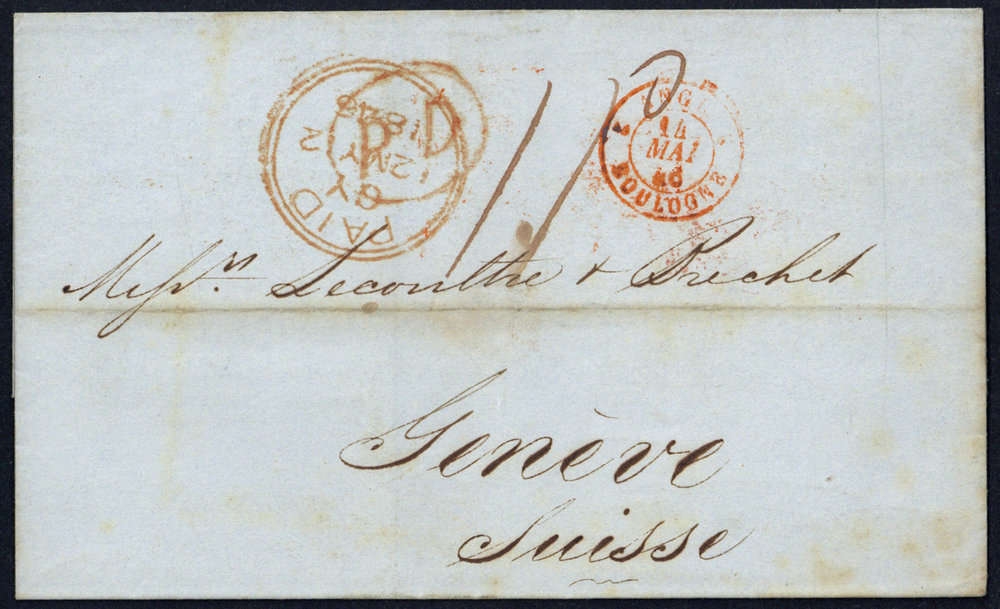 PAID
GY
12MY12
1846
P D
ANGL.
14
MAI
46
BOULOGNE
Messrs. Lecoultre & Prechet
Genève
Suisse